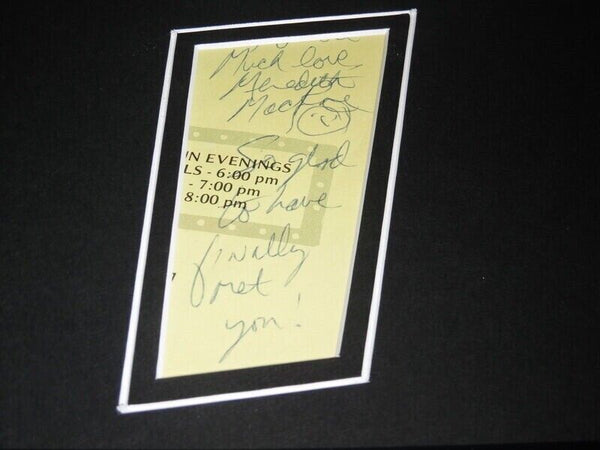 Much love
Meredith
Mac
IN EVENINGS
LS - 6:00 pm
- 7:00 pm
8:00 pm
So glad
to have
finally
met
you!